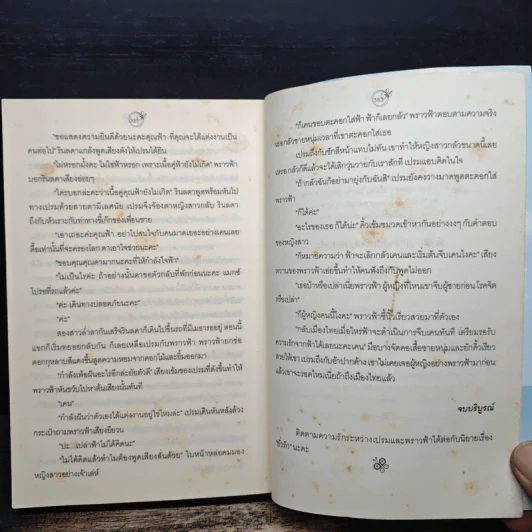 "ขอแสดงความยินดีด้วยนะคะคุณฟ้า ที่คุณจะได้แต่งงานเป็น
คนต่อไป" รินลดาแกล้งพูดเสียงดังให้เปรมได้ยิน
"ไม่หรอกมั้งคะ ไม่ใช่ฟ้าหรอก เพราะเนื้อคู่ฟ้ายังไม่เกิด" พราวฟ้า
บอกรินลดาเสียงอ่อยๆ
"ใครบอกล่ะคะว่าเนื้อคู่คุณฟ้ายังไม่เกิด" รินลดาพูดพร้อมหันไป
ทางเปรมด้วยสายตามีเลศนัย เปรมจึงจ้องตาหญิงสาวกลับ รินลดา
ถึงกับหัวเราะกับท่าทางขี้เก๊กของเพื่อนชาย
"เอาเถอะค่ะคุณฟ้า อย่าไปสนใจกับคนมาดเยอะอย่างเคนเลย
ดื้อเท่านั้นที่จะครองโลก ดาเอาใจช่วยนะคะ"
"ขอบคุณคุณดามากนะคะที่ให้กำลังใจฟ้า"
"ไม่เป็นไรค่ะ ถ้าอย่างนั้นดาขอตัวกลับที่พักก่อนนะคะ แมกซ์
ไปรอที่รถแล้วค่ะ"
"ค่ะ เดินทางปลอดภัยนะคะ"
"ค่ะ"
สองสาวล่ำลากันเสร็จรินลดาก็เดินไปขึ้นรถที่มีเมธารออยู่ ตอนนี้
แขกก็เริ่มทยอยกลับกัน ก็เลยเหลือเปรมกับพราวฟ้า พราวฟ้ายกช่อ
ดอกกุหลาบสีแดงขึ้นสูดความหอมจากดอกไม้และยิ้มออกมา
"กำลังเพ้อฝันอะไรอีกล่ะยัยตัวดี" เสียงเข้มของเปรมที่ดังขึ้นทำให้
พราวฟ้าหันขวับไปหาต้นเสียงนั้นทันที
"เคน"
"กำลังฝันว่าตัวเองได้แต่งงานอยู่ใช่ไหมล่ะ" เปรมเดินหันหลังล้วง
กระเป๋าถามพราวฟ้าเสียงยียวน
"ปะ...เปล่าฟ้าไม่ได้คิดนะ"
"ไม่ได้คิดแล้วทำไมต้องพูดเสียงสั่นด้วย" ใบหน้าหล่อคมมอง
หญิงสาวอย่างเจ้าเล่ห์
363
"ก็เคนชอบตะคอกใส่ฟ้า ฟ้าก็เลยกลัว" พราวฟ้าตอบตามความจริง
เธอกลัวชายหนุ่มเวลาที่เขาตะคอกใส่เธอ
เปรมถึงกับชักสีหน้าแทบไม่ทัน เขาทำให้หญิงสาวกลัวขนาดนี้เลย
เหรอ กลัวก็ดีแล้วจะได้เลิกวุ่นวายกับเราสักที เปรมแอบคิดในใจ
"ถ้ากลัวฉันก็อย่ามายุ่งกับฉันสิ" เปรมยังคงวางมาดพูดตะคอกใส่
พราวฟ้า
"ก็ได้ค่ะ"
"อะไรของเธอ ก็ได้น่ะ" คิ้วเข้มขมวดเข้าหากันอย่างงงๆ กับคำตอบ
ของหญิงสาว
"ก็หมายความว่า ฟ้าจะเลิกกลัวเคนและเริ่มต้นจีบเคนไงคะ" เสียง
หวานของพราวฟ้าเอ่ยขึ้นทำให้คนฟังถึงกับพูดไม่ออก
"เธอบ้าหรือเปล่าเนี่ยพราวฟ้า ผู้หญิงที่ไหนเขาจีบผู้ชายก่อน โรคจิต
หรือเปล่า"
"ก็ผู้หญิงคนนี้ไงคะ" พราวฟ้าชี้นิ้วเรียวสวยมาที่ตัวเอง
"กลับเมืองไทยเมื่อไหร่ฟ้าจะดำเนินการจีบเคนทันที เตรียมรอรับ
ความรักจากฟ้าได้เลยนะคะเคน" มือบางจัดคอเสื้อชายหนุ่มและยักคิ้วเรียว
สวยให้เขา เปรมถึงกับอ้าปากค้าง เขาไม่เคยเจอผู้หญิงอย่างพราวฟ้ามาก่อน
แล้วเขาจะรอดไหมเนี่ยถ้าถึงเมืองไทยแล้ว
จบบริบูรณ์
ติดตามความรักระหว่างเปรมและพราวฟ้าได้ต่อกับนิยายเรื่อง
"ยั่วรัก" นะคะ